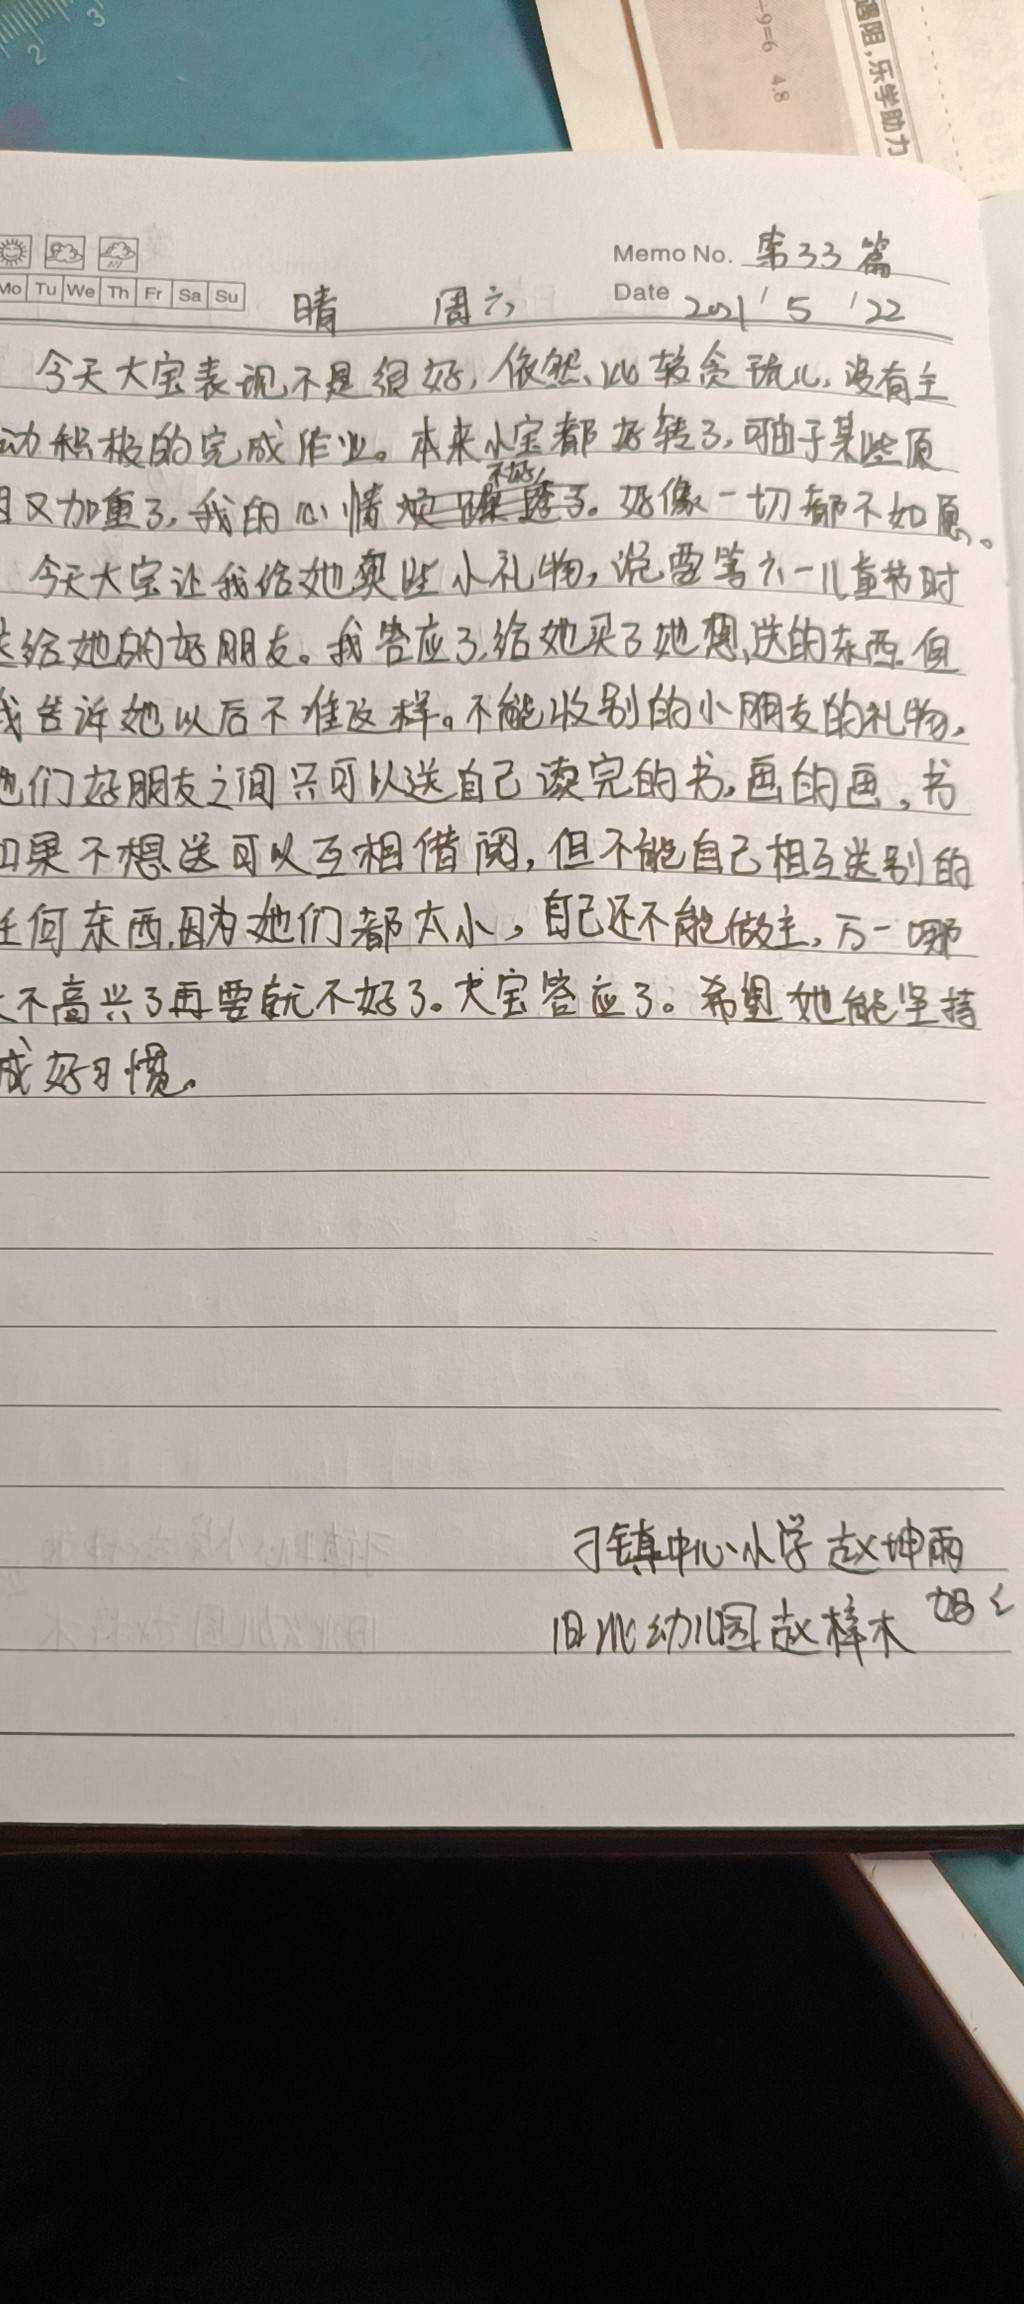 2 3
-9=6 4.8
遇阻,乐学助力
Memo No. 第33篇
Mo Tu We Th Fr Sa Su
晴 周六 Date 2021/5/22
今天大宝表现不是很好,依然比较贪玩儿,没有主
动积极的完成作业。本来小宝都好转了,可由于某些原
因又加重了,我的心情烦躁透了。好像一切都不如愿。
不好
今天大宝让我给她买些小礼物,说要等六一儿童节时
送给她的好朋友。我答应了,给她买了她想送的东西.但
我告诉她以后不准这样。不能收别的小朋友的礼物,
她们好朋友之间只可以送自己读完的书,画的画,书
如果不想送可以互相借阅,但不能自己相互送别的
任何东西,因为她们都太小,自己还不能做主,万一哪
天不高兴了再要就不好了。大宝答应了。希望她能坚持
成好习惯。
刁镇中心小学 赵坤雨
旧北幼儿园 赵梓木